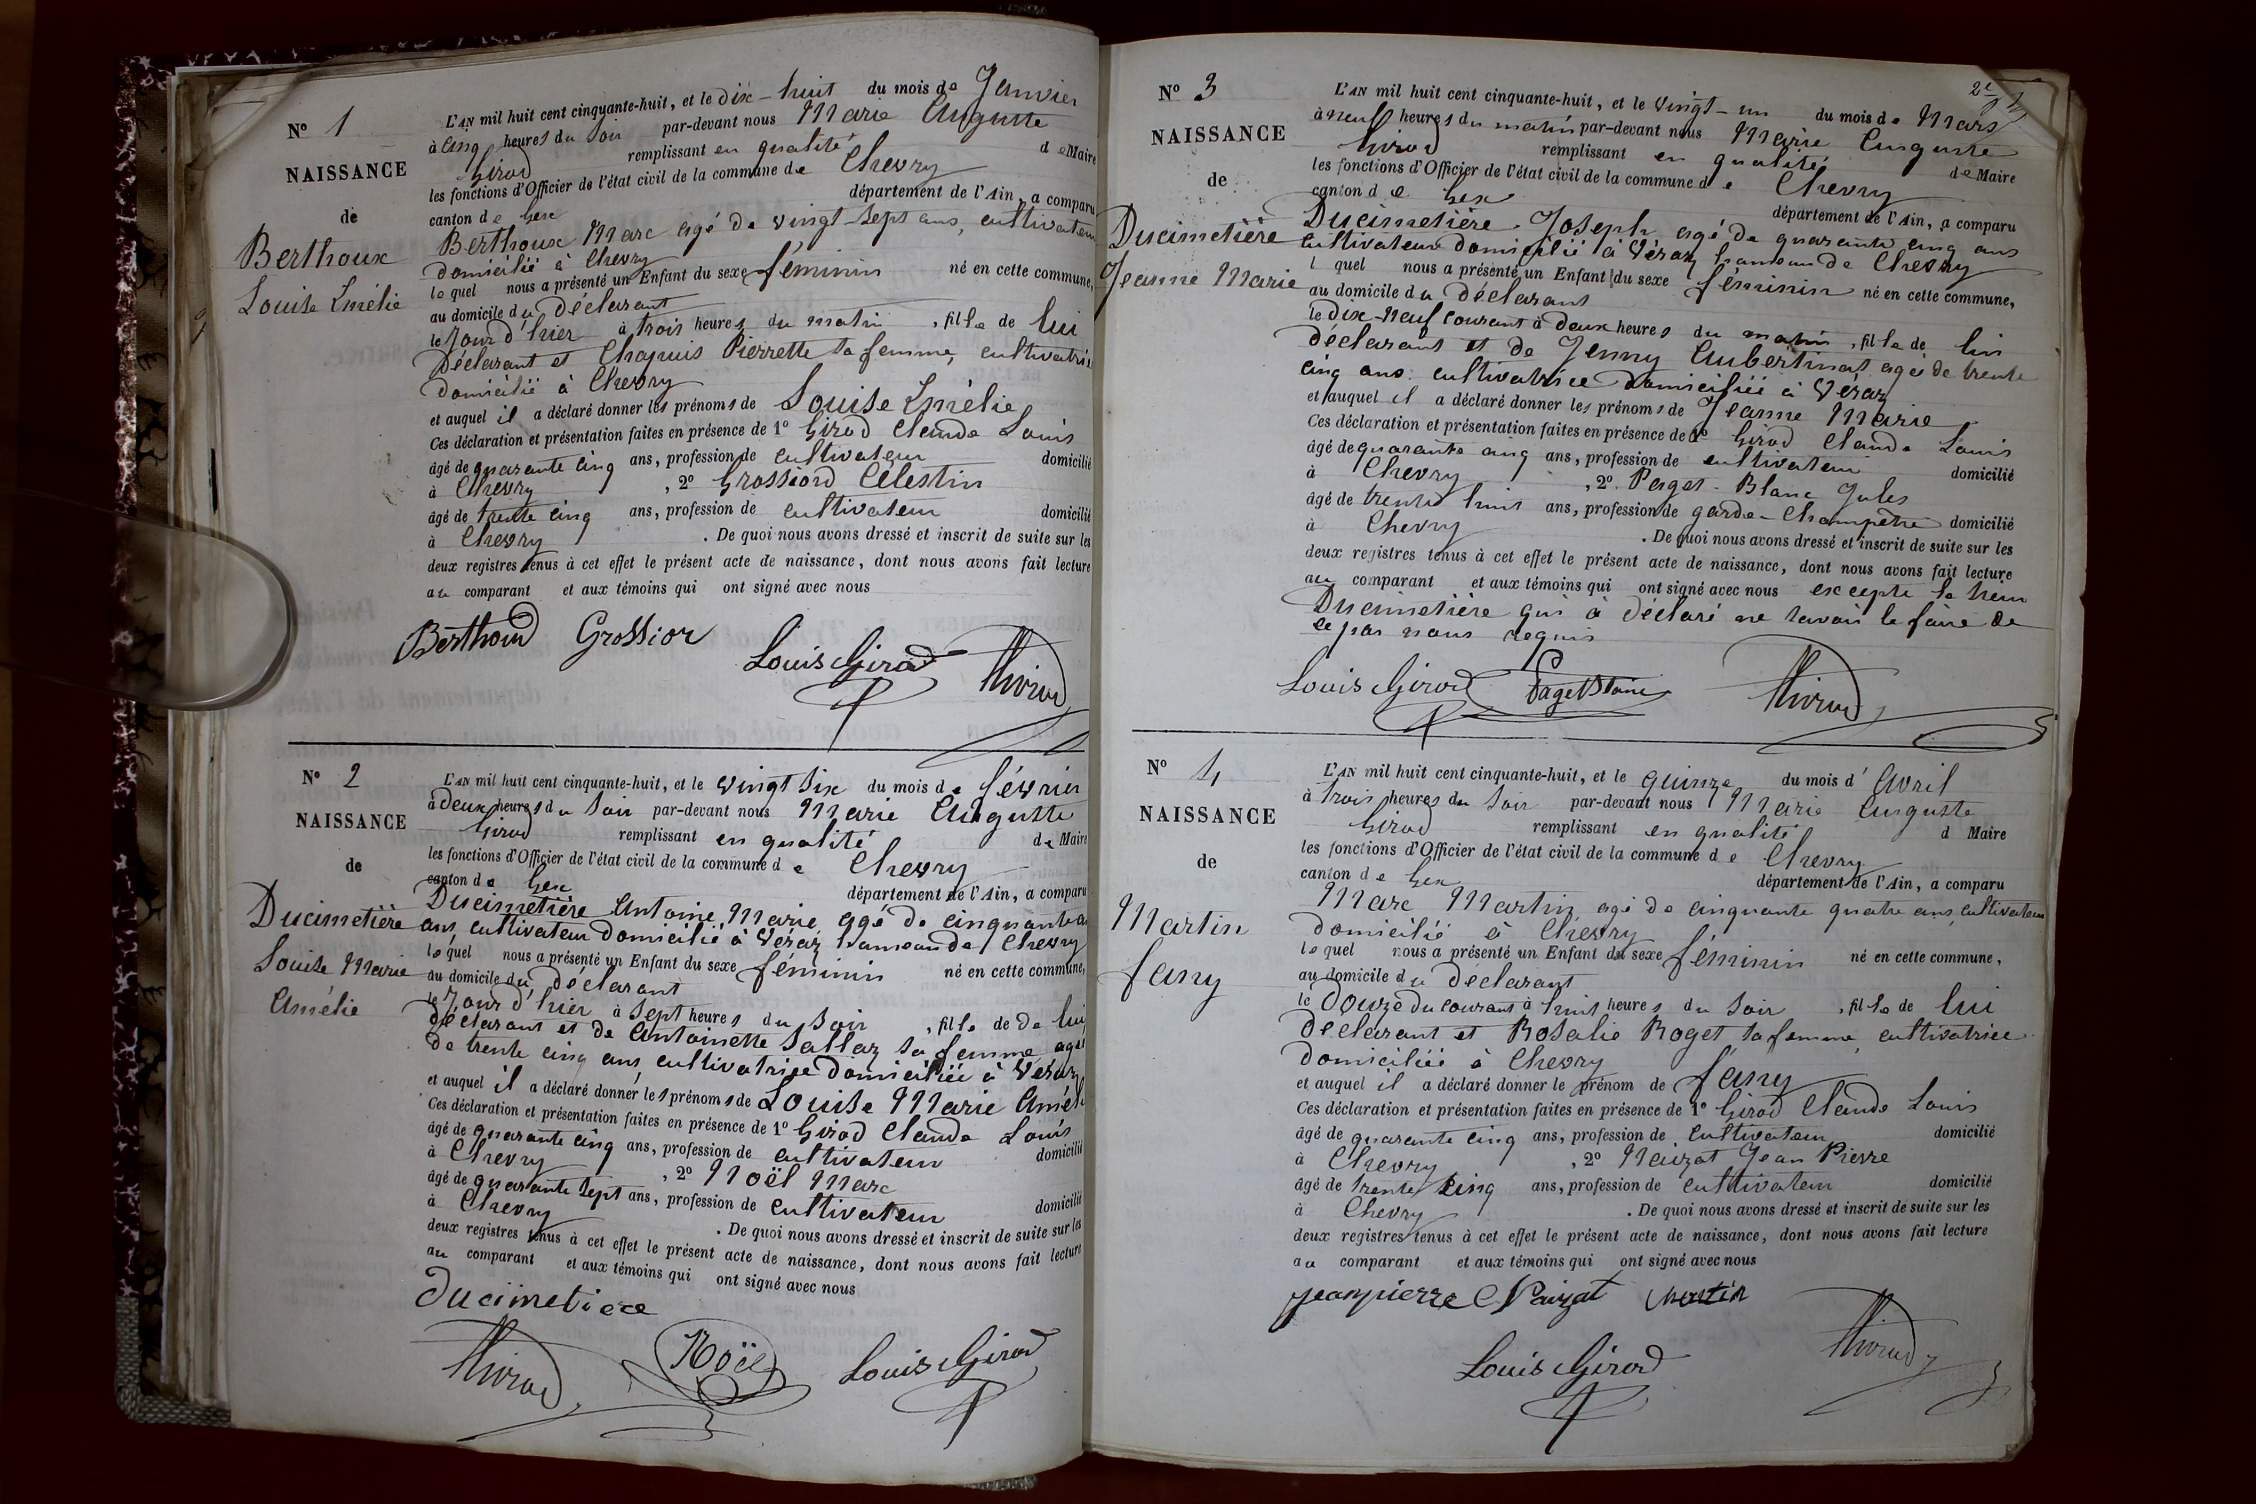 N° 1
NAISSANCE
de
Berthoux
Louise Emélie
L'AN mil huit cent cinquante-huit, et le dix-huit du mois de Janvier
à cinq heures du soir par-devant nous Marie Auguste
Girod remplissant en qualité de Maire
les fonctions d'Officier de l'état civil de la commune de Chevry
canton de Gex département de l'Ain, a comparu
Berthoux Marc agé de vingt-sept ans, cultivateur
domicilié à Chevry
lequel nous a présenté un Enfant du sexe féminin né en cette commune,
au domicile du déclarant
le jour d'hier à trois heures du matin, fille de lui
déclarant et Chapuis Pierrette sa femme, cultivatrice
domicilié à Chevry
et auquel il a déclaré donner les prénoms de Louise Emélie
Ces déclaration et présentation faites en présence de 1° Girod Claude Louis
âgé de quarante cinq ans, profession de cultivateur domicilié
à Chevry, 2° Grossiord Célestin
âgé de trente cinq ans, profession de cultivateur domicilié
à Chevry. De quoi nous avons dressé et inscrit de suite sur les
deux registres tenus à cet effet le présent acte de naissance, dont nous avons fait lecture
au comparant et aux témoins qui ont signé avec nous
Berthoud Grossior
Louis Girod
N° 2
NAISSANCE
de
Ducimetière
Louise Marie
Amélie
L'AN mil huit cent cinquante-huit, et le vingt six du mois de février
à deux heures du soir par-devant nous Marie Auguste
Girod remplissant en qualité de Maire
les fonctions d'Officier de l'état civil de la commune de Chevry
canton de Gex département de l'Ain, a comparu
Ducimetière Antoine Marie agé de cinquante
ans, cultivateur domicilié à Véraz hameau de Chevry
lequel nous a présenté un Enfant du sexe féminin né en cette commune,
au domicile du déclarant
le jour d'hier à sept heures du soir, fille de de lui
déclarant et de Antoinette Sallaz sa femme, agée
de trente cinq ans, cultivatrice domiciliée à Véraz
et auquel il a déclaré donner les prénoms de Louise Marie Améli
Ces déclaration et présentation faites en présence de 1° Girod Claude Louis
âgé de quarante cinq ans, profession de cultivateur domicilié
à Chevry, 2° Noël Marc
âgé de quarante sept ans, profession de cultivateur domicilié
à Chevry. De quoi nous avons dressé et inscrit de suite sur les
deux registres tenus à cet effet le présent acte de naissance, dont nous avons fait lecture
au comparant et aux témoins qui ont signé avec nous
Ducimetiere
Noël Louis Girod
N° 3
NAISSANCE
de
Ducimetière
Jeanne Marie
L'AN mil huit cent cinquante-huit, et le vingt-un du mois de Mars
à neuf heures du matin par-devant nous Marie Auguste
Girod remplissant en qualité de Maire
les fonctions d'Officier de l'état civil de la commune de Chevry
canton de Gex département de l'Ain, a comparu
Ducimetière Joseph agé de quarante cinq ans
cultivateur domicilié à Véraz hameau de Chevry
lquel nous a présenté un Enfant du sexe féminin né en cette commune,
au domicile du déclarant
le dix-neuf courant à deux heures du matin, fille de lui
déclarant et de Jenny Aubertinat agée de trente
cinq ans cultivatrice domiciliée à Véraz
et auquel il a déclaré donner les prénoms de Jeanne Marie
Ces déclaration et présentation faites en présence de 1° Girod Claude Louis
âgé de quarante cinq ans, profession de cultivateur domicilié
à Chevry, 2° Paget-Blanc Jules
âgé de trente huit ans, profession de garde-champêtre domicilié
à Chevry. De quoi nous avons dressé et inscrit de suite sur les
deux registres tenus à cet effet le présent acte de naissance, dont nous avons fait lecture
au comparant et aux témoins qui ont signé avec nous excepté le
Ducimetière qui a déclaré ne savoir le faire de
ce par nous requis
Louis Girod PagetBlanc
N° 4
NAISSANCE
de
Martin
fany
L'AN mil huit cent cinquante-huit, et le quinze du mois d'Avril
à trois heures du soir par-devant nous Marie Auguste
Girod remplissant en qualité d Maire
les fonctions d'Officier de l'état civil de la commune de Chevry
canton de Gex département de l'Ain, a comparu
Marc Martin agé de cinquante quatre ans, cultivateur
domicilié à Chevry
lequel nous a présenté un Enfant du sexe féminin né en cette commune,
au domicile du déclarant
le douze du courant à huit heures du soir, fille de lui
déclarant et Rosalie Roget sa femme, cultivatrice
domiciliée à Chevry
et auquel il a déclaré donner le prénom de fany
Ces déclaration et présentation faites en présence de 1° Girod Claude Louis
âgé de quarante cinq ans, profession de cultivateur domicilié
à Chevry, 2° Naizot Jean Pierre
âgé de trente cinq ans, profession de cultivateur domicilié
à Chevry. De quoi nous avons dressé et inscrit de suite sur les
deux registres tenus à cet effet le présent acte de naissance, dont nous avons fait lecture
au comparant et aux témoins qui ont signé avec nous
jeanpierre Naizat Martin
Louis Girod